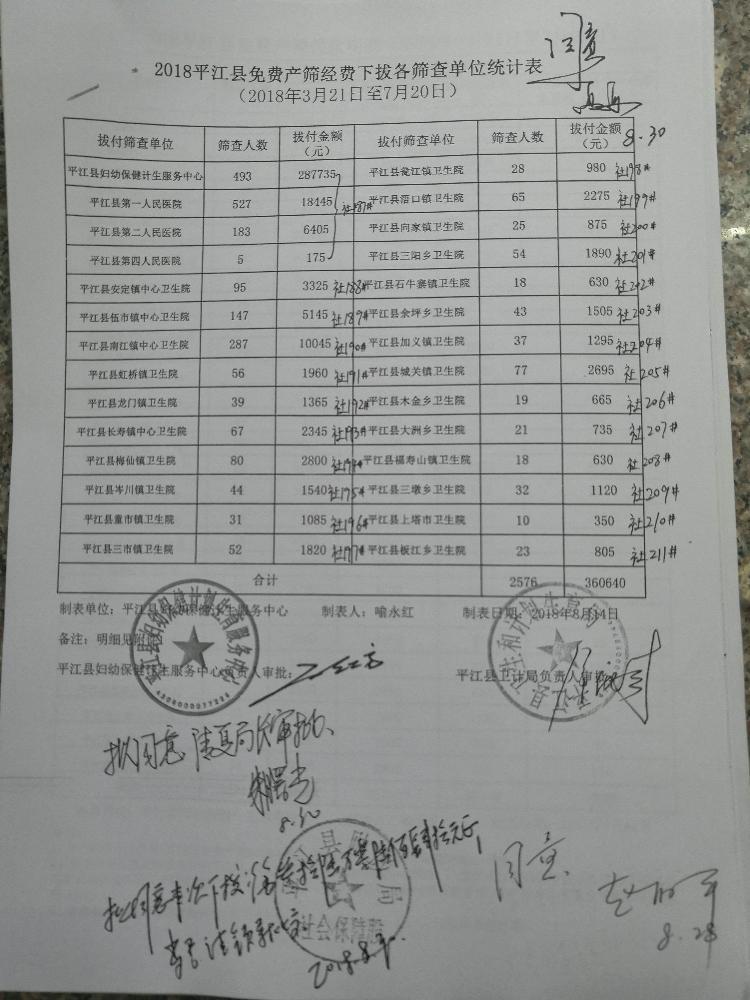 同意
8.30
2018平江县免费产筛经费下拔各筛查单位统计表
（2018年3月21日至7月20日）
拔付筛查单位 筛查人数 拔付金额（元） 拔付筛查单位 筛查人数 拔付金额（元）
平江县妇幼保健计生服务中心 493 287735 平江县瓮江镇卫生院 28 980 社198#
平江县第一人民医院 527 18445 社187# 平江县浯口镇卫生院 65 2275 社199#
平江县第二人民医院 183 6405 平江县向家镇卫生院 25 875 社200#
平江县第四人民医院 5 175 平江县三阳乡卫生院 54 1890 社201#
平江县安定镇中心卫生院 95 3325 社188# 平江县石牛寨镇卫生院 18 630 社202#
平江县伍市镇中心卫生院 147 5145 社189# 平江县余坪乡卫生院 43 1505 社203#
平江县南江镇中心卫生院 287 10045 社190# 平江县加义镇卫生院 37 1295 社204#
平江县虹桥镇卫生院 56 1960 社191# 平江县城关镇卫生院 77 2695 社205#
平江县龙门镇卫生院 39 1365 社192# 平江县木金乡卫生院 19 665 社206#
平江县长寿镇中心卫生院 67 2345 社193# 平江县大洲乡卫生院 21 735 社207#
平江县梅仙镇卫生院 80 2800 社194# 平江县福寿山镇卫生院 18 630 社208#
平江县岑川镇卫生院 44 1540 社195# 平江县三墩乡卫生院 32 1120 社209#
平江县童市镇卫生院 31 1085 社196# 平江县上塔市卫生院 10 350 社210#
平江县三市镇卫生院 52 1820 社197# 平江县板江乡卫生院 23 805 社211#
合计 2576 360640
制表单位：平江县妇幼保健计生服务中心 制表人：喻永红 制表日期：2018年8月14日
备注：明细见附
平江县妇幼保健计生服务中心负责人审批： 平江县卫计局负责人审批
平江县妇幼保健计划生育服务中心
4306000077334
拟同意 请夏局长审批、
8.30
同意
8.28
社会保障股
2018.8.30.